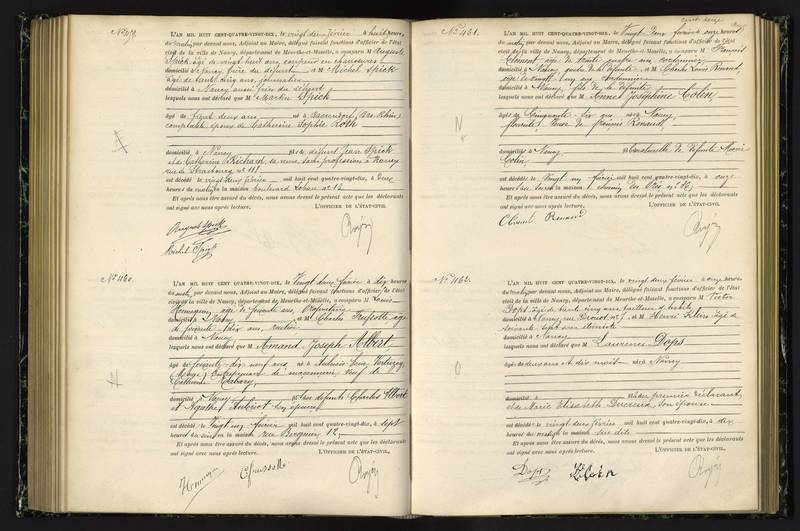 N° 459.
L'AN MIL HUIT CENT QUATRE-VINGT-DIX, le vingt deux février à huit heures
du matin, par devant nous, Adjoint au Maire, délégué faisant fonctions d'officier de l'état
civil de la ville de Nancy, département de Meurthe-et-Moselle, a comparu M Auguste
Spick, âgé de vingt huit ans, coupeur en chaussures,
domicilié à Nancy, frère du défunt, et M Michel Spick
âgé de trente cinq ans, journalier
domicilié à Nancy aussi frère du défunt
lesquels nous ont déclaré que M Martin Spick
âgé de trente deux ans né à (Bas-Rhin)
comptable, époux de Catherine Sophie Roth
domicilié à Nancy et de défunt Jean Spick
et de Catherine Richard, sa veuve sans profession à Nancy
rue de Strasbourg n° 111
est décédé le vingt deux février mil huit cent quatre-vingt-dix, à deux
heures du matin en la maison boulevard Lobau n° 13
Et après nous être assuré du décès, nous avons dressé le présent acte que les déclarants
ont signé avec nous après lecture. L'OFFICIER DE L'ÉTAT-CIVIL,
Auguste Spick
Michel Spick
N° 460.
L'AN MIL HUIT CENT QUATRE-VINGT-DIX, le vingt deux février à dix heures
du matin, par devant nous, Adjoint au Maire, délégué faisant fonctions d'officier de l'état
civil de la ville de Nancy, département de Meurthe-et-Moselle, a comparu M Louis
domicilié à Nancy et M Charles
de soixante dix ans, rentier
domicilié à Nancy
lesquels nous ont déclaré que M Amand Joseph Albert
âgé de soixante dix neuf ans né à
(Meuse), Entrepreneur de maçonnerie, veuf de
Catherine
domicilié à Nancy fils des défunts Charles Albert
et Agathe son épouse
est décédé le vingt un février mil huit cent quatre-vingt-dix, à sept
heures du soir en la maison rue 12
Et après nous être assuré du décès, nous avons dressé le présent acte que les déclarants
ont signé avec nous après lecture. L'OFFICIER DE L'ÉTAT-CIVIL,
cent onze
N° 461.
L'AN MIL HUIT CENT QUATRE-VINGT-DIX, le vingt deux février à onze heures
du matin, par devant nous, Adjoint au Maire, délégué faisant fonctions d'officier de l'état
civil de la ville de Nancy, département de Meurthe-et-Moselle, a comparu M François
Clément âgé de trente quatre ans cordonnier
domicilié à Nancy, gendre de la défunte, et M Charles Louis Renaud,
âgé de vingt un ans cordonnier
domicilié à Nancy, fils de la défunte
lesquels nous ont déclaré que M Anne Joséphine Colin
âgée de cinquante six ans née à Nancy,
fleuriste, veuve de François Renaud,
domiciliée à Nancy, et naturelle de défunte Marie
Colin,
est décédée le vingt un février mil huit cent quatre-vingt-dix, à onze
heures du soir en la maison chemin
Et après nous être assuré du décès, nous avons dressé le présent acte que les déclarants
ont signé avec nous après lecture. L'OFFICIER DE L'ÉTAT-CIVIL,
Clément Renaud
N° 462.
L'AN MIL HUIT CENT QUATRE-VINGT-DIX, le vingt deux février à onze heures
du matin, par devant nous, Adjoint au Maire, délégué faisant fonctions d'officier de l'état
civil de la ville de Nancy, département de Meurthe-et-Moselle, a comparu M Victor
Dops, âgé de trente cinq ans, tailleur d'habits,
domicilié à Nancy, rue Drouot n° 7, et M Henri Klein âgé de
soixante sept ans ébéniste
domicilié à Nancy
lesquels nous ont déclaré que M Laurence Dops
âgée de deux ans et dix mois née à Nancy
domiciliée à fille du premier déclarant,
et de Marie Elisabeth son épouse
est décédée le vingt deux février mil huit cent quatre-vingt-dix, à dix
heures du matin en la maison sus dite
Et après nous être assuré du décès, nous avons dressé le présent acte que les déclarants
ont signé avec nous après lecture. L'OFFICIER DE L'ÉTAT-CIVIL,
Dops Klein